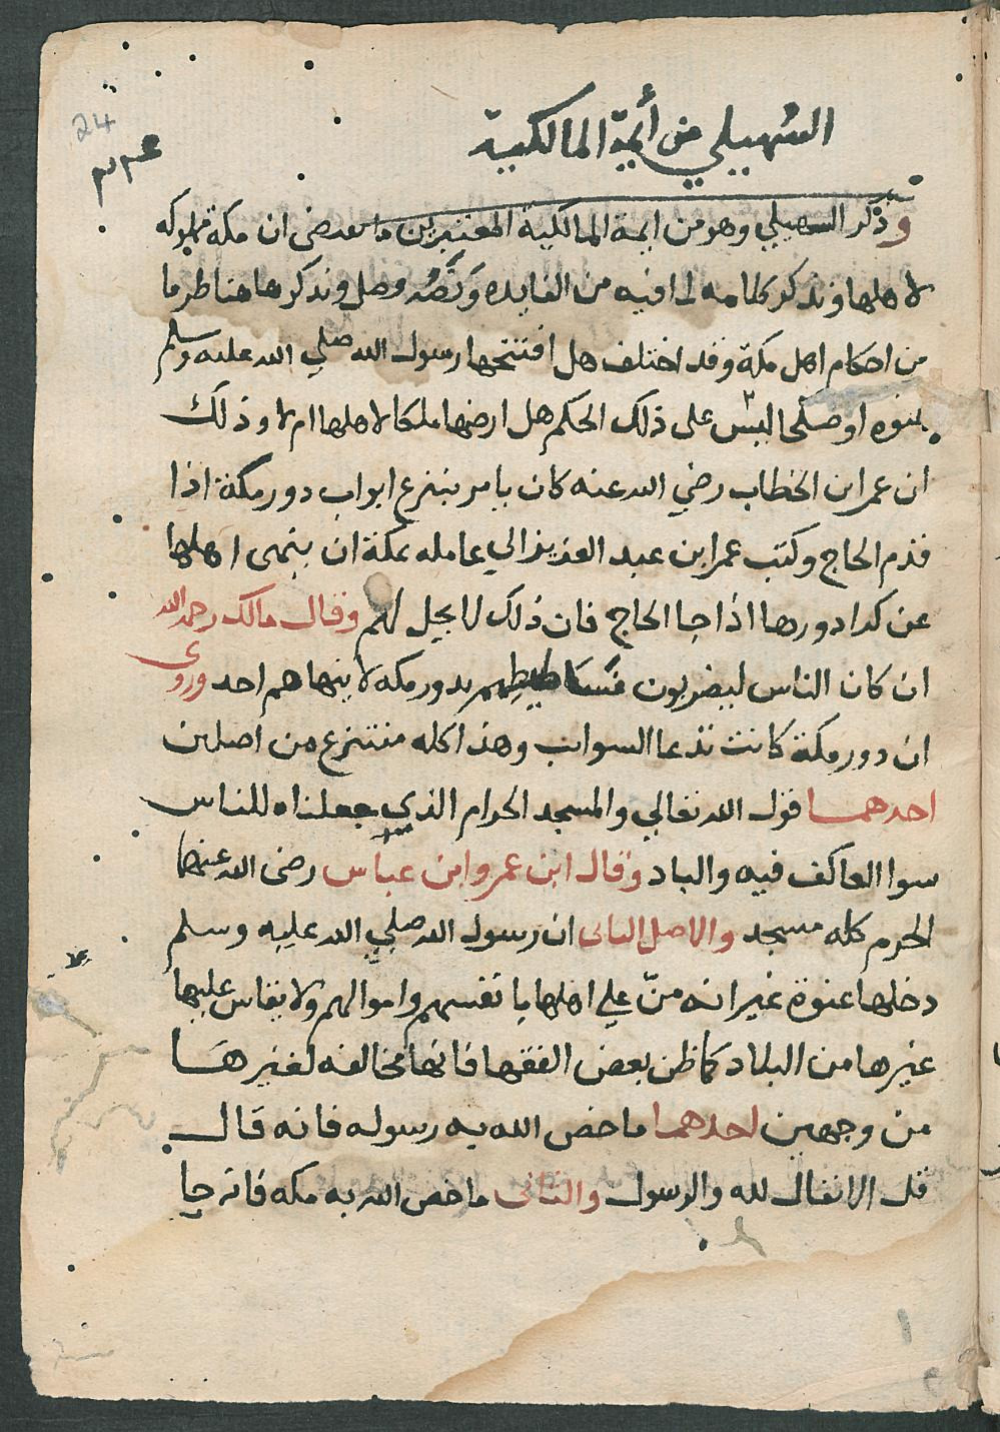 24
السهيلي من أيمة المالكية
وذكر السهيلي وهو من ايمة المالكية المعتبرين ما يقتضي ان مكة مملوكه
لاهلها ونذكر كلامه لما فيه من الفايده ونصه فصل ونذكر هاهنا طرفا
من احكام اهل مكة وقد اختلف هل افتتحها رسول الله صلي الله عليه وسلم
عنوه او صلحا ليبتني على ذلك الحكم هل ارضها ملكا لاهلها ام لا وذلك
ان عمر ابن الخطاب رضي الله عنه كان يامر بنزع ابواب دور مكة اذا
قدم الحاج وكتب عمر ابن عبد العزيز الي عامله بمكة ان ينهى اهلها
عن كرا دورها اذا جا الحاج فان ذلك لا يحل لهم وقال مالك رحمه الله
ان كان الناس ليضربون فساطيطهم بدور مكه لا ينهاهم احد وروي
ان دور مكة كانت تدعا السوايب وهذا كله منتزع من اصلين
احدهما قول الله تعالي والمسجد الحرام الذي جعلناه للناس
سوا العاكف فيه والباد وقال ابن عمر وابن عباس رضى الله عنهما
الحرم كله مسجد والاصل الثاني ان رسول الله صلي الله عليه وسلم
دخلها عنوة غير انه منّ علي اهلها بانفسهم واموالهم ولا يقاس عليها
غيرها من البلاد كما ظن بعض الفقها فانها مخالفه لغيرها
من وجهين احدهما ما خص الله به رسوله فانه قال
قل الانفال لله والرسول والثاني ما خص الله به مكه فانه جا